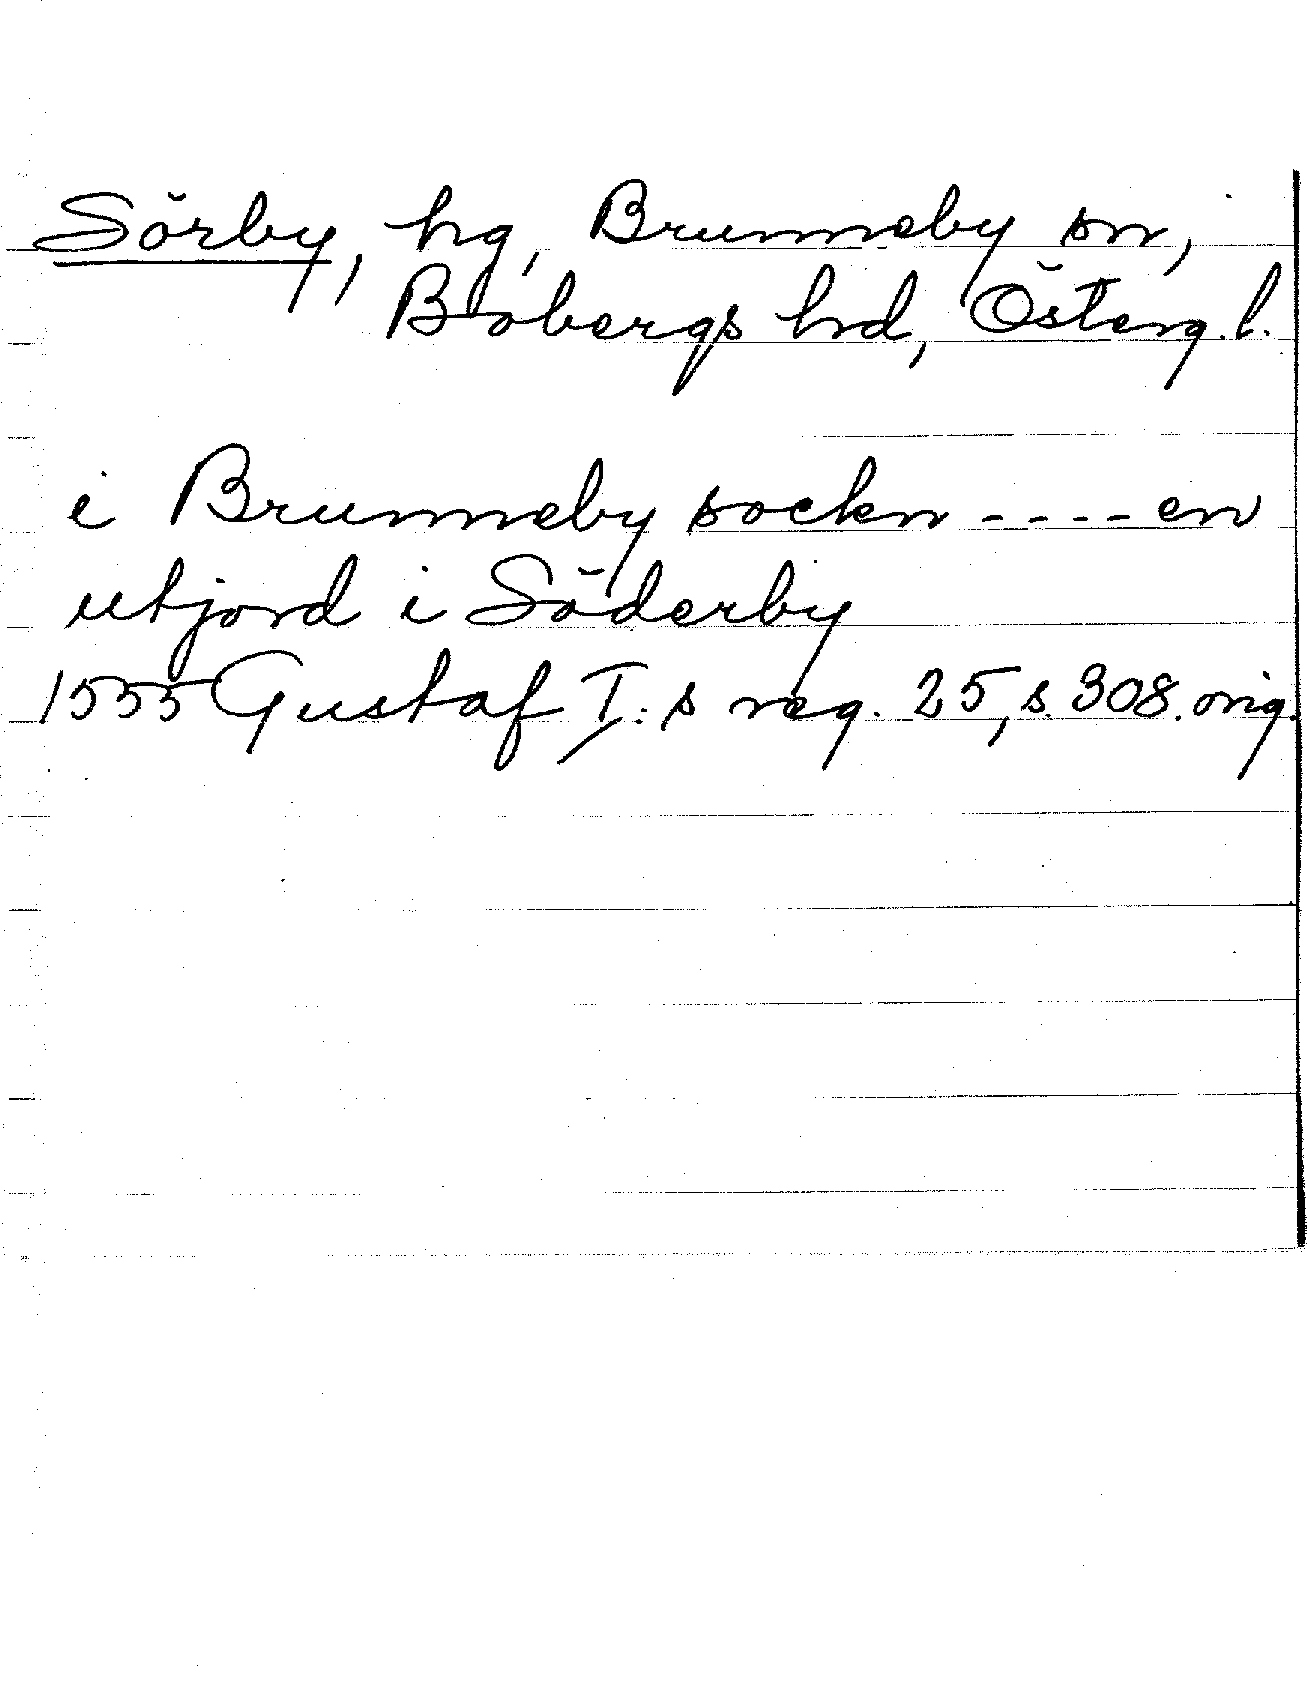 Sörby, hg, Brunneby sn,
Bobergs hrd, Österg. l.
i Brunneby sockn - - - - en
utjord i Söderby
1555 Gustaf I:s reg. 25, s. 308. orig.